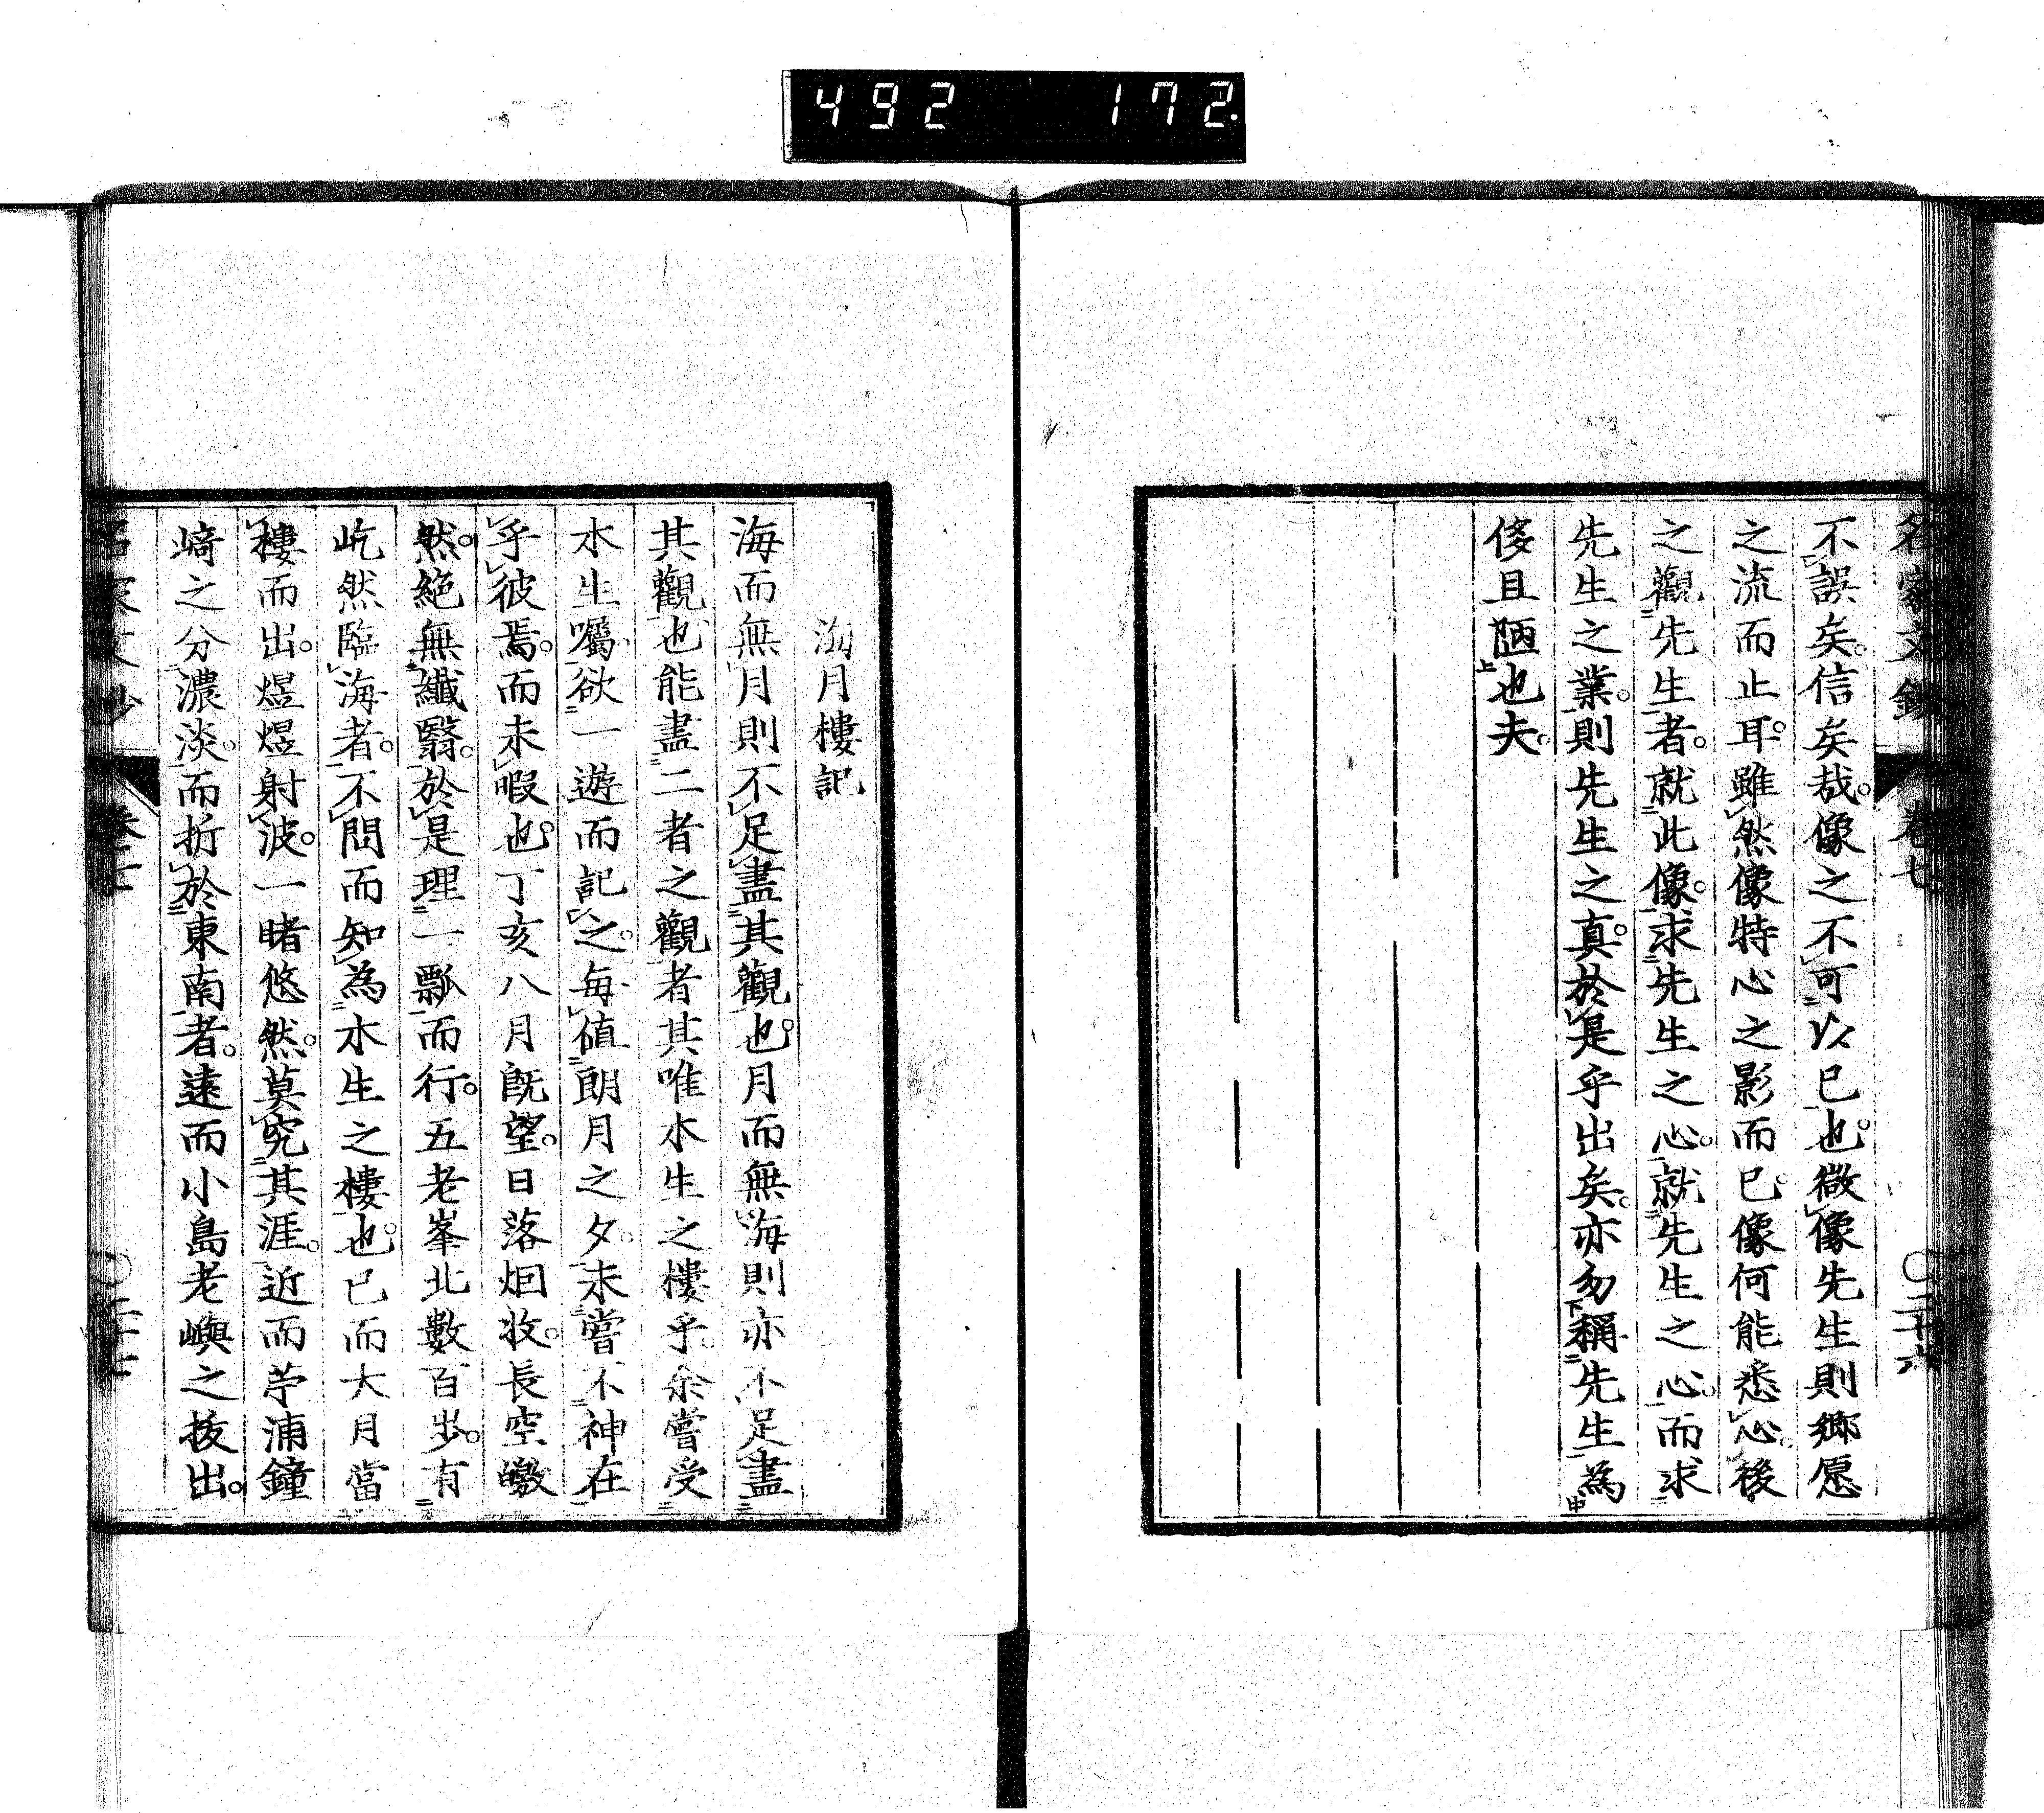 492 172.
名家文鈔 卷七 〇二十六
不誤矣。信矣哉。像之不可以已也。微像先生則鄉愿
之流而止耳。雖然像特心之影而已。像何能悉心。後
之觀先生者。就此像。求先生之心。就先生之心。而求
先生之業。則先生之真。於是乎出矣。亦勿稱先生為
侈且陋也夫。
海月樓記
海而無月則不足盡其觀也。月而無海則亦不足盡
其觀也能盡二者之觀者其唯水生之樓乎。余嘗受
水生囑欲一遊而記之。每值朗月之夕。未嘗不神在
乎彼焉。而未暇也。丁亥八月既望。日落烟收。長空皦
然。絕無纖翳。於是理一瓢而行。五老峯北數百步。有
屹然臨海者。不問而知為水生之樓也。已而大月當
樓而出。煜煜射波。一睹悠然。莫究其涯。近而苧浦鐘
﨑之分濃淡。而折於東南者。遠而小島老嶼之拔出。
名家文鈔 卷七 〇二十七